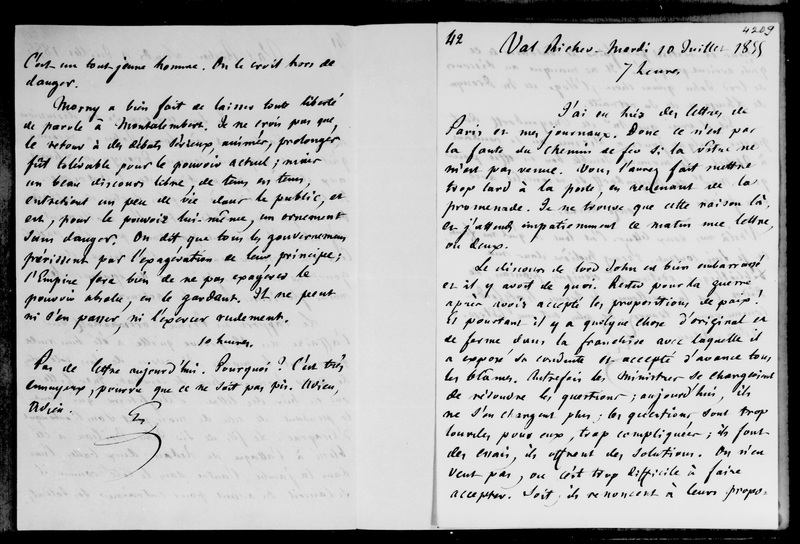 C'est un tout jeune homme. On le croit hors de
danger.
Morny a bien fait de laisser toute liberté
de parole à Montalembert. Je ne crois pas que
le retour à des débats sérieux, animés, prolongés,
fût tolérable pour le pouvoir actuel ; mais
un beau discours libre, de tems en tems,
entretient un peu de vie dans le public, et
est, pour le pouvoir lui-même, un ornement
sans danger. On dit que tous les gouvernemens
périssent par l'exagération de leur principe ;
l'Empire fera bien de ne pas exagérer le
pouvoir absolu, en le gardant. Il ne peut
ni s'en passer, ni l'exercer rudement.
10 heures.
Pas de lettre aujourd'hui. Pourquoi ? C'est très
ennuyeux, pourvu que ce ne soit pas pis. Adieu,
Adieu.
G
42
4209
Val Richer - Mardi 10 Juillet 1855
7 heures
J'ai eu hier des lettres de
Paris et mes journaux. Donc ce n'est pas
la faute du chemin de fer si la vôtre ne
m'est pas venue. Vous l'avez fait mettre
trop tard à la poste, en revenant de la
promenade. Je ne trouve que cette raison là,
et j'attends impatiemment ce matin une lettre,
ou deux.
Le discours de lord John est bien embarrassé
et il y avoit de quoi. Rester pour la guerre
après avoir accepté les propositions de paix !
Et pourtant il y a quelque chose d'original et
de ferme dans la franchise avec laquelle il
a exposé sa conduite et accepté d'avance tous
les blâmes. Autrefois les ministres se chargeoient
de résoudre les questions ; aujourd'hui, ils
ne s'en chargent plus ; les questions sont trop
lourdes pour eux, trop compliquées ; ils font
des essais, ils offrent des solutions. On n'en
veut pas, ou c'est trop difficile à faire
accepter. Soit ; ils renoncent à leurs propo-